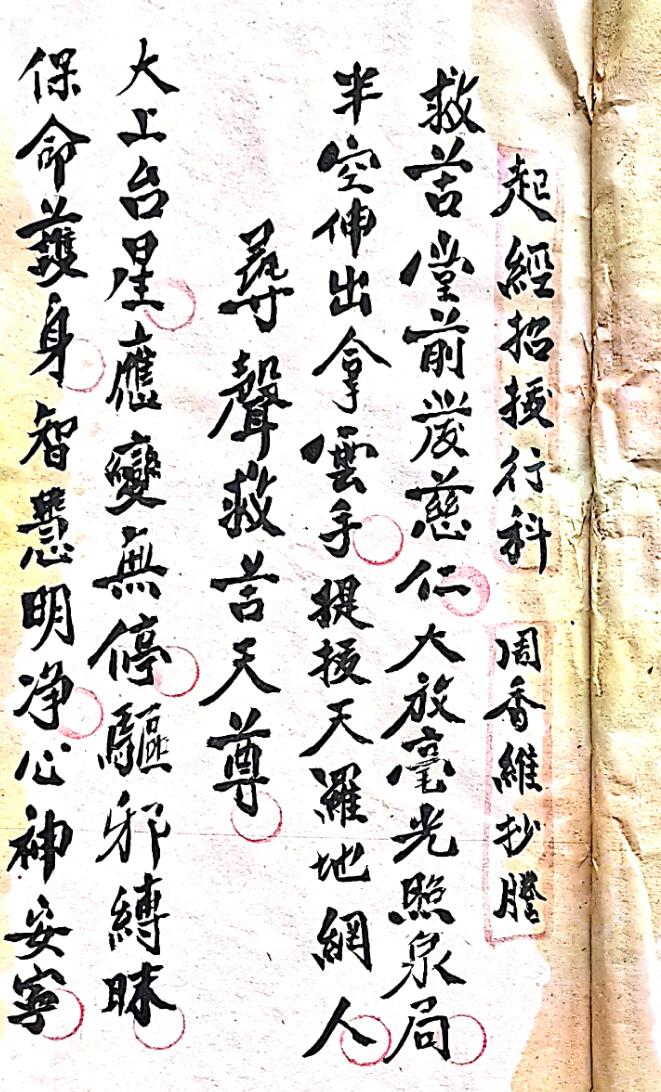 起經招拔行科 周香維抄謄
救苦堂前發慈仁大放毫光照泉局
半空伸出拿雲手提拔天羅地網人
尋聲救苦天尊
大上台星應變無停驅邪縛眛
保命護身智慧明净心神安寧